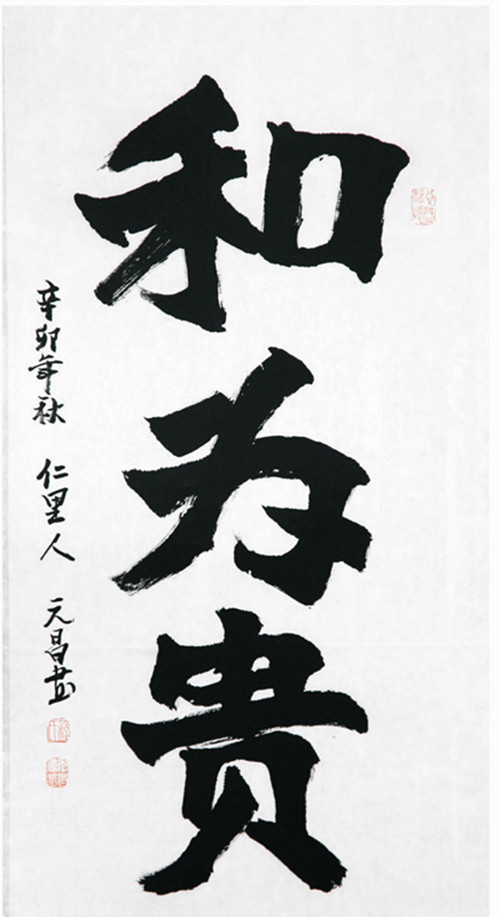 和为贵
辛卯年秋 仁里人 元昌书